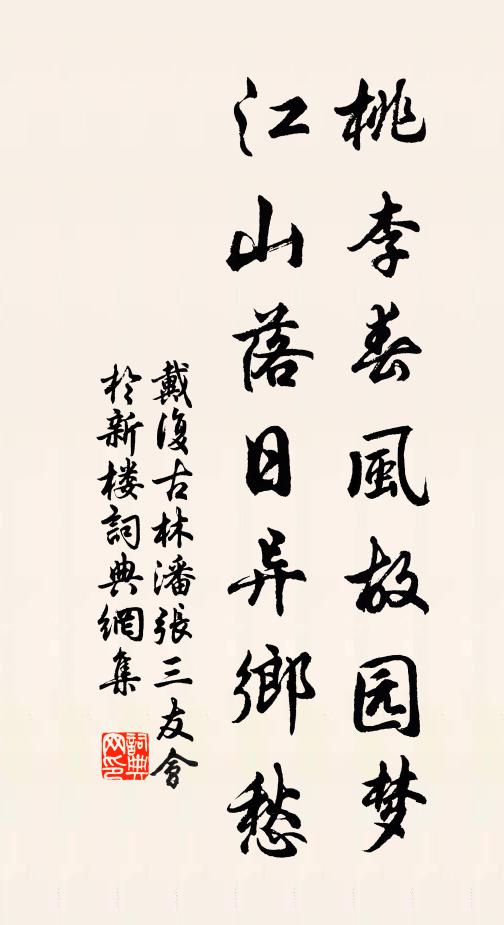 桃李春風故园梦
江山落日异鄉愁
戴復古林潘張三友會
於新楼詞典網集
詞典网印